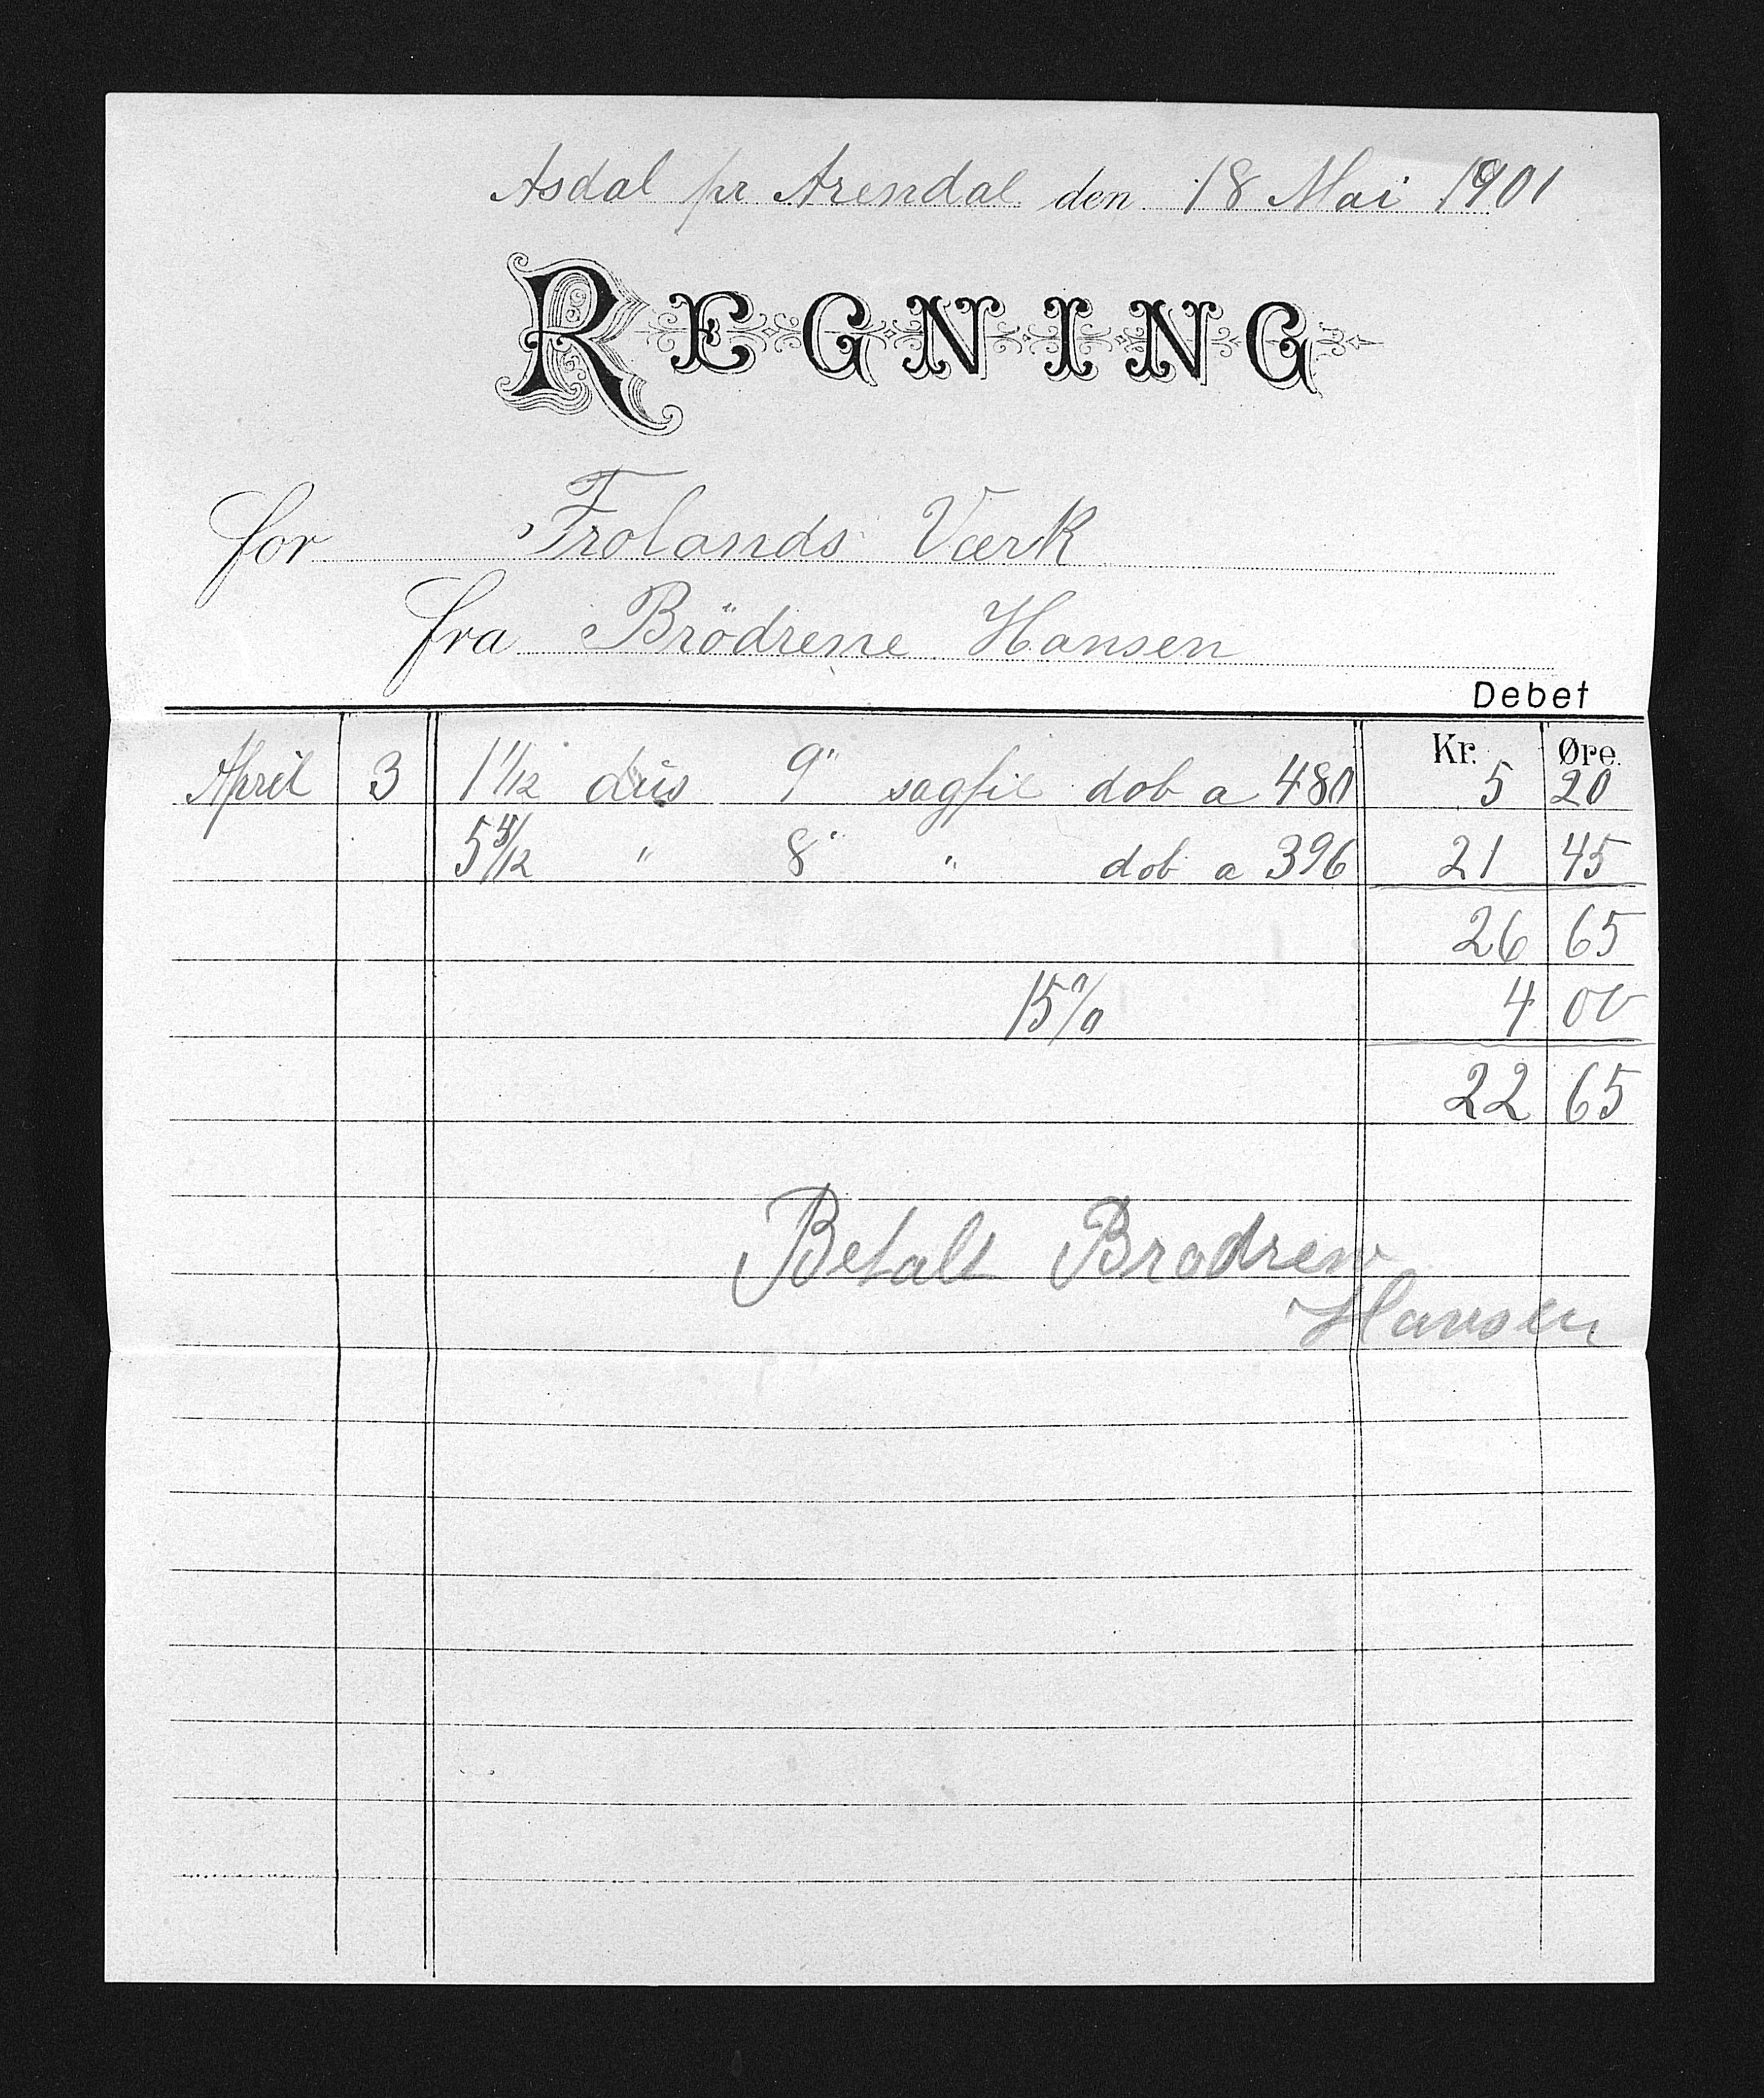 Asdal pr Arendal den 18 Mai 1901
REGNING
for Frolands Værk
fra Brödrene Hansen
Debet
Kr. Øre.
April 3 1 1/12 dus 9" sagfil dob a 480 5 20
5 5/12 " 8" " dob a 396 21 45
26 65
15% 4 00
22 65
Betalt Brodrene
Hansen